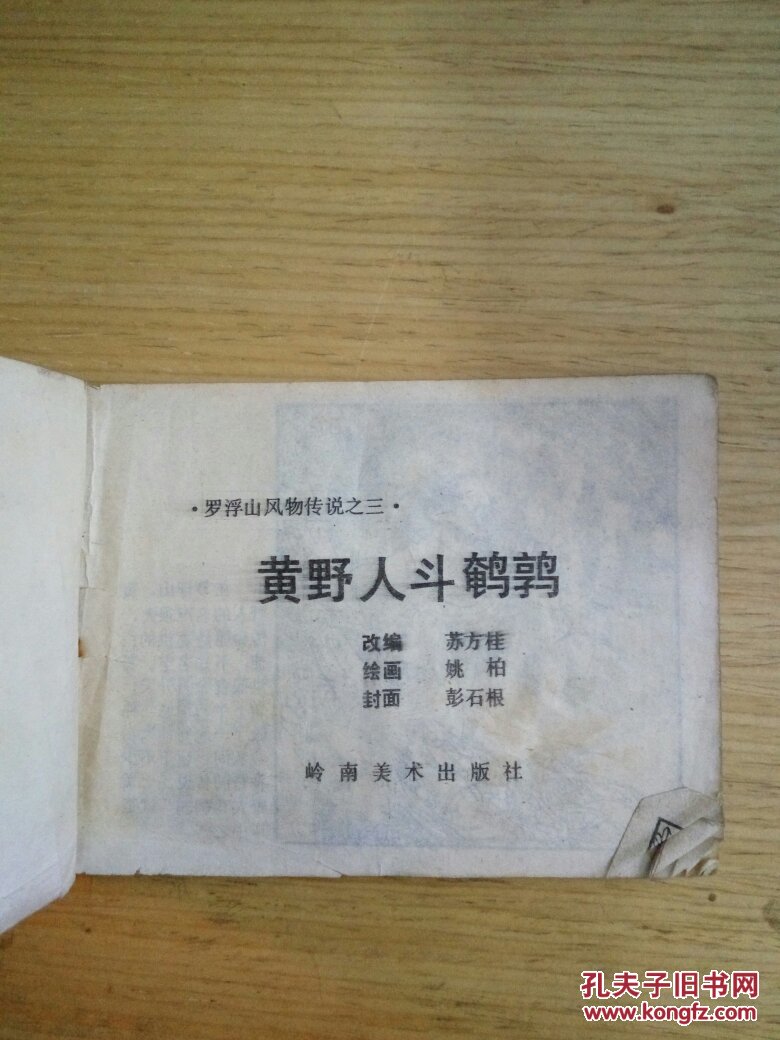 ·罗浮山风物传说之三·
黄野人斗鹌鹑
改编 苏方桂
绘画 姚柏
封面 彭石根
岭南美术出版社
孔夫子旧书网
www.kongfz.com